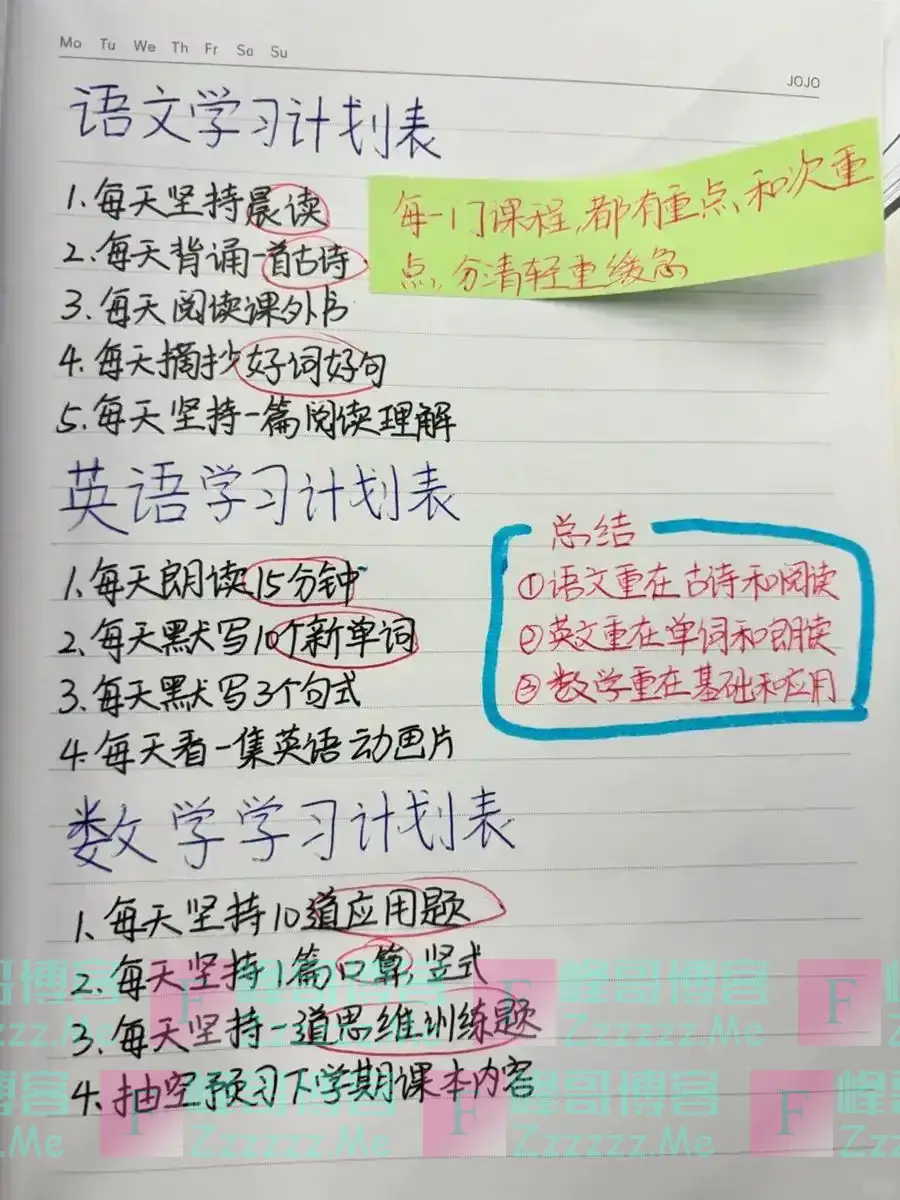 Mo Tu We Th Fr Sa Su
JOJO
语文学习计划表
1.每天坚持晨读
2.每天背诵一首古诗
3.每天阅读课外书
4.每天摘抄好词好句
5.每天坚持一篇阅读理解
每一门课程,都有重点和次重
点,分清轻重缓急
英语学习计划表
1.每天朗读15分钟
2.每天默写10个新单词
3.每天默写3个句式
4.每天看一集英语动画片
总结
①语文重在古诗和阅读
②英文重在单词和朗读
③数学重在基础和应用
数学学习计划表
1.每天坚持10道应用题
2.每天坚持1篇口算,竖式
3.每天坚持一道思维训练题
4.抽空预习下学期课本内容
峰哥博客 F 峰哥博客 F 峰哥博客 F 峰
Zzzzzz.Me Zzzzzz.Me Zzzzzz.Me Zz
峰哥博客 F 峰哥博客 F 峰哥博客 F 峰哥
z.Me Zzzzzz.Me Zzzzzz.Me Zzzz